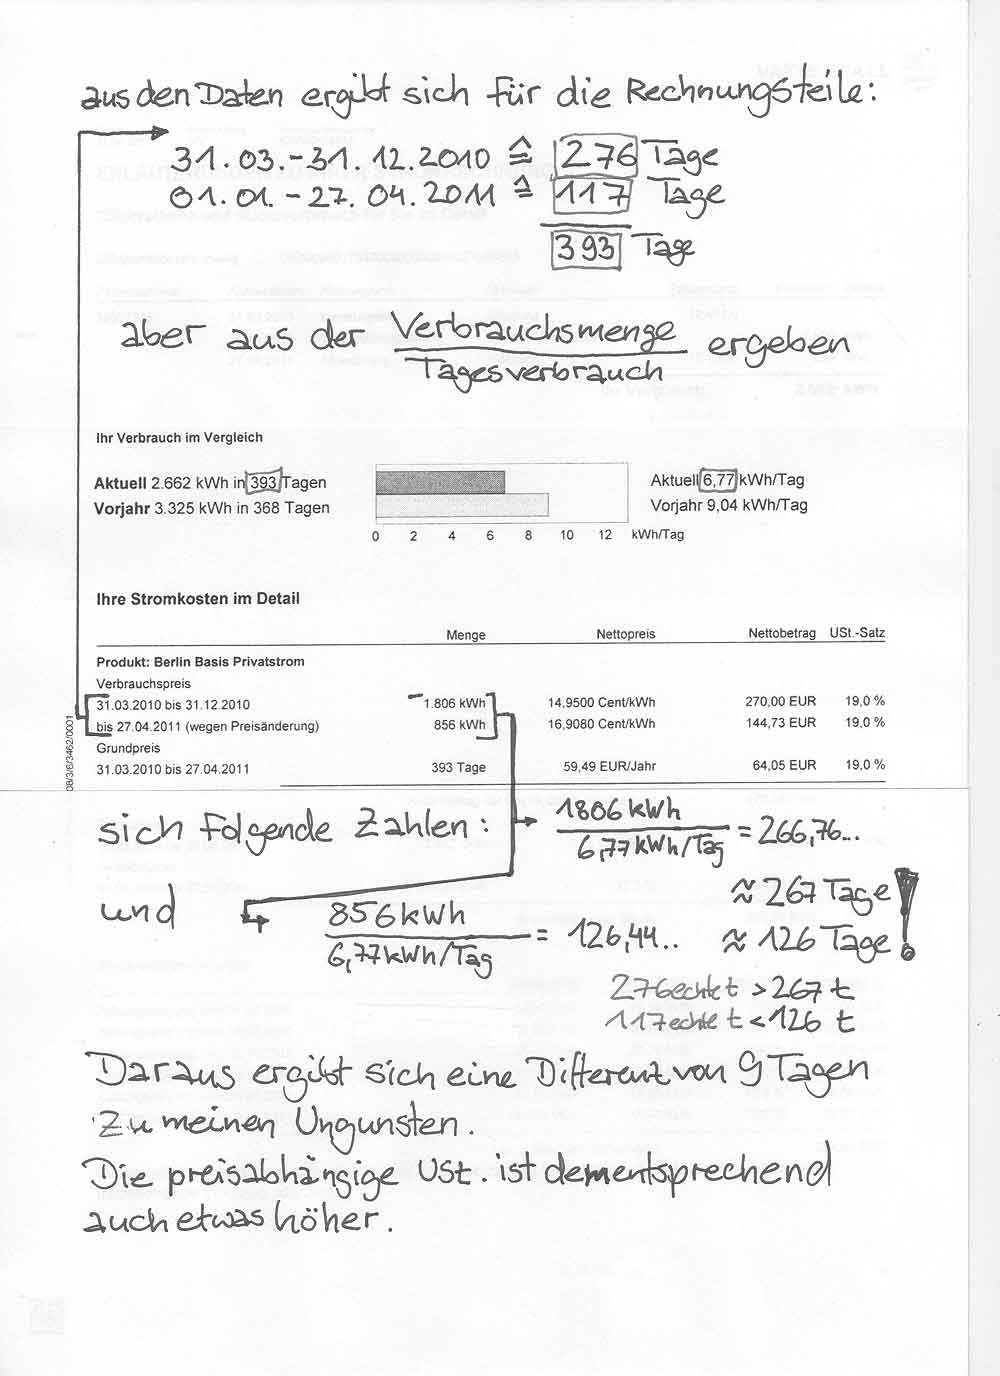 aus den Daten ergibt sich für die Rechnungsteile:
31.03.-31.12.2010 ≙ 276 Tage
01.01.-27.04.2011 ≙ 117 Tage
393 Tage
aber aus der Verbrauchsmenge ergeben
Tagesverbrauch
Ihr Verbrauch im Vergleich
Aktuell 2.662 kWh in 393 Tagen
Vorjahr 3.325 kWh in 368 Tagen
Aktuell 6,77 kWh/Tag
Vorjahr 9,04 kWh/Tag
0 2 4 6 8 10 12 kWh/Tag
Ihre Stromkosten im Detail
Menge Nettopreis Nettobetrag USt.-Satz
Produkt: Berlin Basis Privatstrom
Verbrauchspreis
31.03.2010 bis 31.12.2010 1.806 kWh 14,9500 Cent/kWh 270,00 EUR 19,0 %
bis 27.04.2011 (wegen Preisänderung) 856 kWh 16,9080 Cent/kWh 144,73 EUR 19,0 %
Grundpreis
31.03.2010 bis 27.04.2011 393 Tage 59,49 EUR/Jahr 64,05 EUR 19,0 %
08/3/6/3462/0001
sich folgende Zahlen: 1806 kWh
6,77 kWh/Tag = 266,76...
≈ 267 Tage!
und 856 kWh
6,77 kWh/Tag = 126,44.. ≈ 126 Tage
276 echte t > 267 t
117 echte t < 126 t
Daraus ergibt sich eine Differenz von 9 Tagen
zu meinen Ungunsten.
Die preisabhängige USt. ist dementsprechend
auch etwas höher.